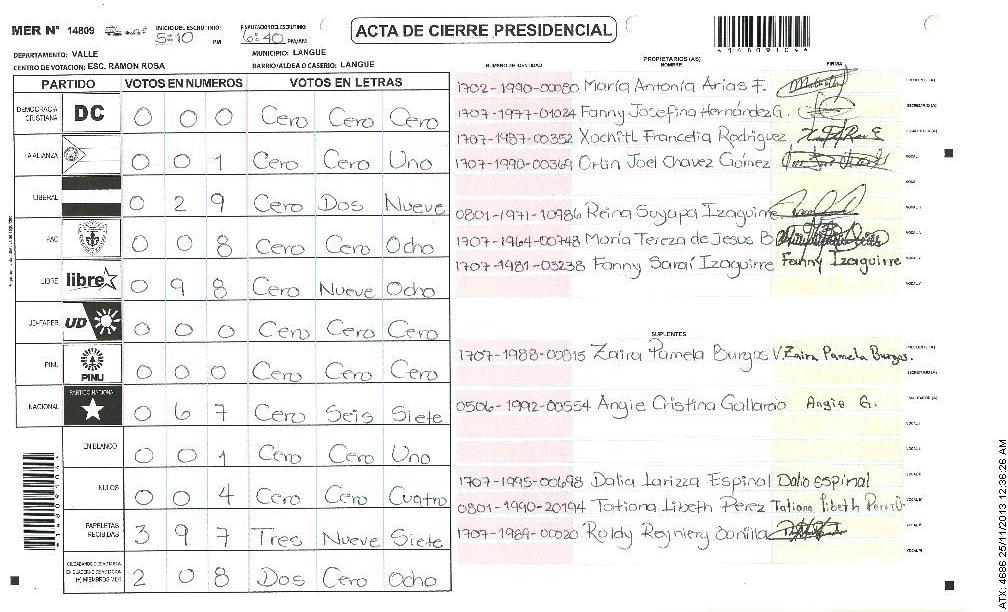 MER Nº 14809 INICIO DEL ESCRUTINIO: 5:10 PM FINALIZACION DEL ESCRUTINIO: 6:40 PM/AM
ACTA DE CIERRE PRESIDENCIAL
DEPARTAMENTO: VALLE MUNICIPIO: LANGUE
CENTRO DE VOTACION: ESC. RAMON ROSA BARRIO/ALDEA O CASERIO: LANGUE
PARTIDO VOTOS EN NUMEROS VOTOS EN LETRAS
DEMOCRACIA CRISTIANA DC 0 0 0 Cero Cero Cero
LA ALIANZA 0 0 1 Cero Cero Uno
LIBERAL 0 2 9 Cero Dos Nueve
PAC 0 0 8 Cero Cero Ocho
LIBRE libre 0 9 8 Cero Nueve Ocho
UD-FAPER UD 0 0 0 Cero Cero Cero
PINU PINU 0 0 0 Cero Cero Cero
NACIONAL PARTIDO NACIONAL 0 6 7 Cero Seis Siete
EN BLANCO 0 0 1 Cero Cero Uno
NULOS 0 0 4 Cero Cero Cuatro
PAPELETAS RECIBIDAS 3 9 7 Tres Nueve Siete
2 0 8 Dos Cero Ocho
NUMERO DE IDENTIDAD PROPIETARIOS (AS) NOMBRE FIRMA
1702-1990-00080 María Antonía Arias F.
1707-1977-01024 Fanny Josefina Hernández G.
1707-1987-00352 Xochitl Francelia Rodriguez
1707-1990-00369 Orlin Joel Chavez Gómez
0801-1971-10986 Reina Suyapa Izaguirre
1707-1964-00748 María Tereza de Jesus B
1707-1981-03238 Fanny Saraí Izaguirre Fanny Izaguirre
SUPLENTES
1707-1988-00815 Zaira Pamela Burgos V. Zaira Pamela Burgos.
0506-1992-00554 Angie Cristina Gallardo Angie G.
1707-1995-00698 Dalia Larizza Espinal Dalia espinal
0801-1990-20194 Tatiana Libeth Perez Tatiana libeth Perez
1707-1989-00020 Roldy Reyniery Bonilla
ATX: 4686 25/11/2013 12:36:26 AM